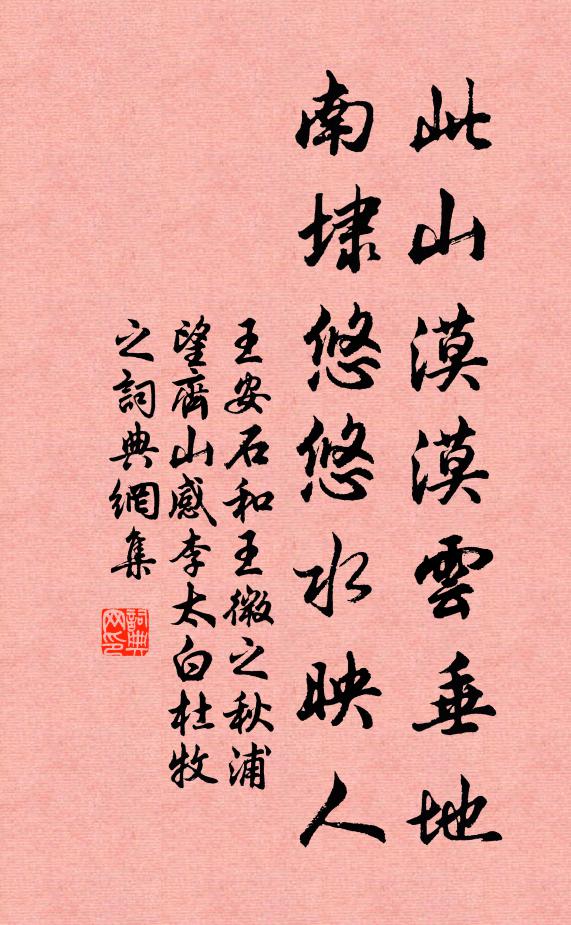 此山漠漠雲垂地
南埭悠悠水映人
王安石和王微之秋浦
望齊山感李太白杜牧
之詞典網集
詞典网印